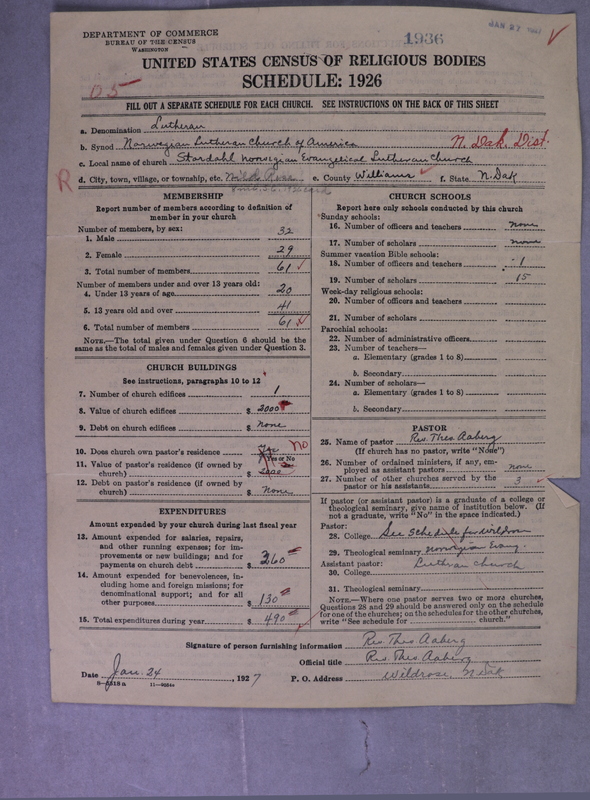 DEPARTMENT OF COMMERCE
BUREAU OF THE CENSUS
WASHINGTON
1936
JAN 27 1927
UNITED STATES CENSUS OF RELIGIOUS BODIES
SCHEDULE: 1926
FILL OUT A SEPARATE SCHEDULE FOR EACH CHURCH. SEE INSTRUCTIONS ON THE BACK OF THIS SHEET
a. Denomination Lutheran
b. Synod Norwegian Lutheran Church of America N. Dak. Dist.
c. Local name of church Stordahl Norwegian Evangelical Lutheran Church
R d. City, town, village, or township, etc. Wild Rose e. County Williams f. State N. Dak
MEMBERSHIP
Report number of members according to definition of
member in your church
Number of members, by sex:
1. Male 32
2. Female 29
3. Total number of members 61
Number of members under and over 13 years old:
4. Under 13 years of age 20
5. 13 years old and over 41
6. Total number of members 61
NOTE.—The total given under Question 6 should be
the same as the total of males and females given under Question 3.
CHURCH BUILDINGS
See instructions, paragraphs 10 to 12
7. Number of church edifices 1
8. Value of church edifices $ 2000
9. Debt on church edifices $ None
10. Does church own pastor's residence? Yes No
(Yes or No)
11. Value of pastor's residence (if owned by
church) $
12. Debt on pastor's residence (if owned by
church) $ None
EXPENDITURES
Amount expended by your church during last fiscal year
13. Amount expended for salaries, repairs,
and other running expenses; for im-
provements or new buildings; and for
payments on church debt $ 360
14. Amount expended for benevolences, in-
cluding home and foreign missions; for
denominational support; and for all
other purposes $ 130
15. Total expenditures during year $ 490
CHURCH SCHOOLS
Report here only schools conducted by this church
Sunday schools:
16. Number of officers and teachers none
17. Number of scholars none
Summer vacation Bible schools:
18. Number of officers and teachers 1
19. Number of scholars 15
Week-day religious schools:
20. Number of officers and teachers
21. Number of scholars
Parochial schools:
22. Number of administrative officers
23. Number of teachers—
a. Elementary (grades 1 to 8)
b. Secondary
24. Number of scholars—
a. Elementary (grades 1 to 8)
b. Secondary
PASTOR
25. Name of pastor Rev. Theo Aaberg
(If church has no pastor, write "None")
26. Number of ordained ministers, if any, em-
ployed as assistant pastors none
27. Number of other churches served by the
pastor or his assistants 3
If pastor (or assistant pastor) is a graduate of a college or
theological seminary, give name of institution below. (If
not a graduate, write "No" in the space indicated.)
Pastor:
28. College See schedule for
29. Theological seminary Norwegian Evang.
Assistant pastor: Lutheran Church
30. College
31. Theological seminary
NOTE.—Where one pastor serves two or more churches,
Questions 28 and 29 should be answered only on the schedule
for one of the churches; on the schedules for the other churches,
write "See schedule for church."
Signature of person furnishing information Rev. Theo Aaberg
Official title Rev. Theo Aaberg
Date Jan. 24, 1927 P. O. Address Wildrose, N. Dak